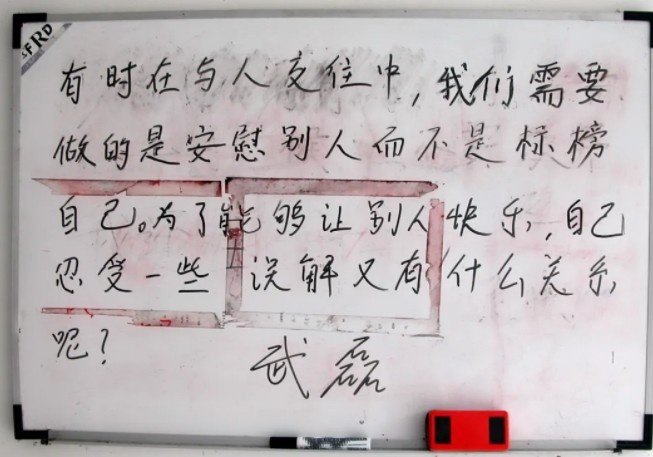 FRD
有时在与人交往中,我们需要
做的是安慰别人而不是标榜
自己。为了能够让别人快乐,自己
忍受一些误解又有什么关系
呢?
武磊